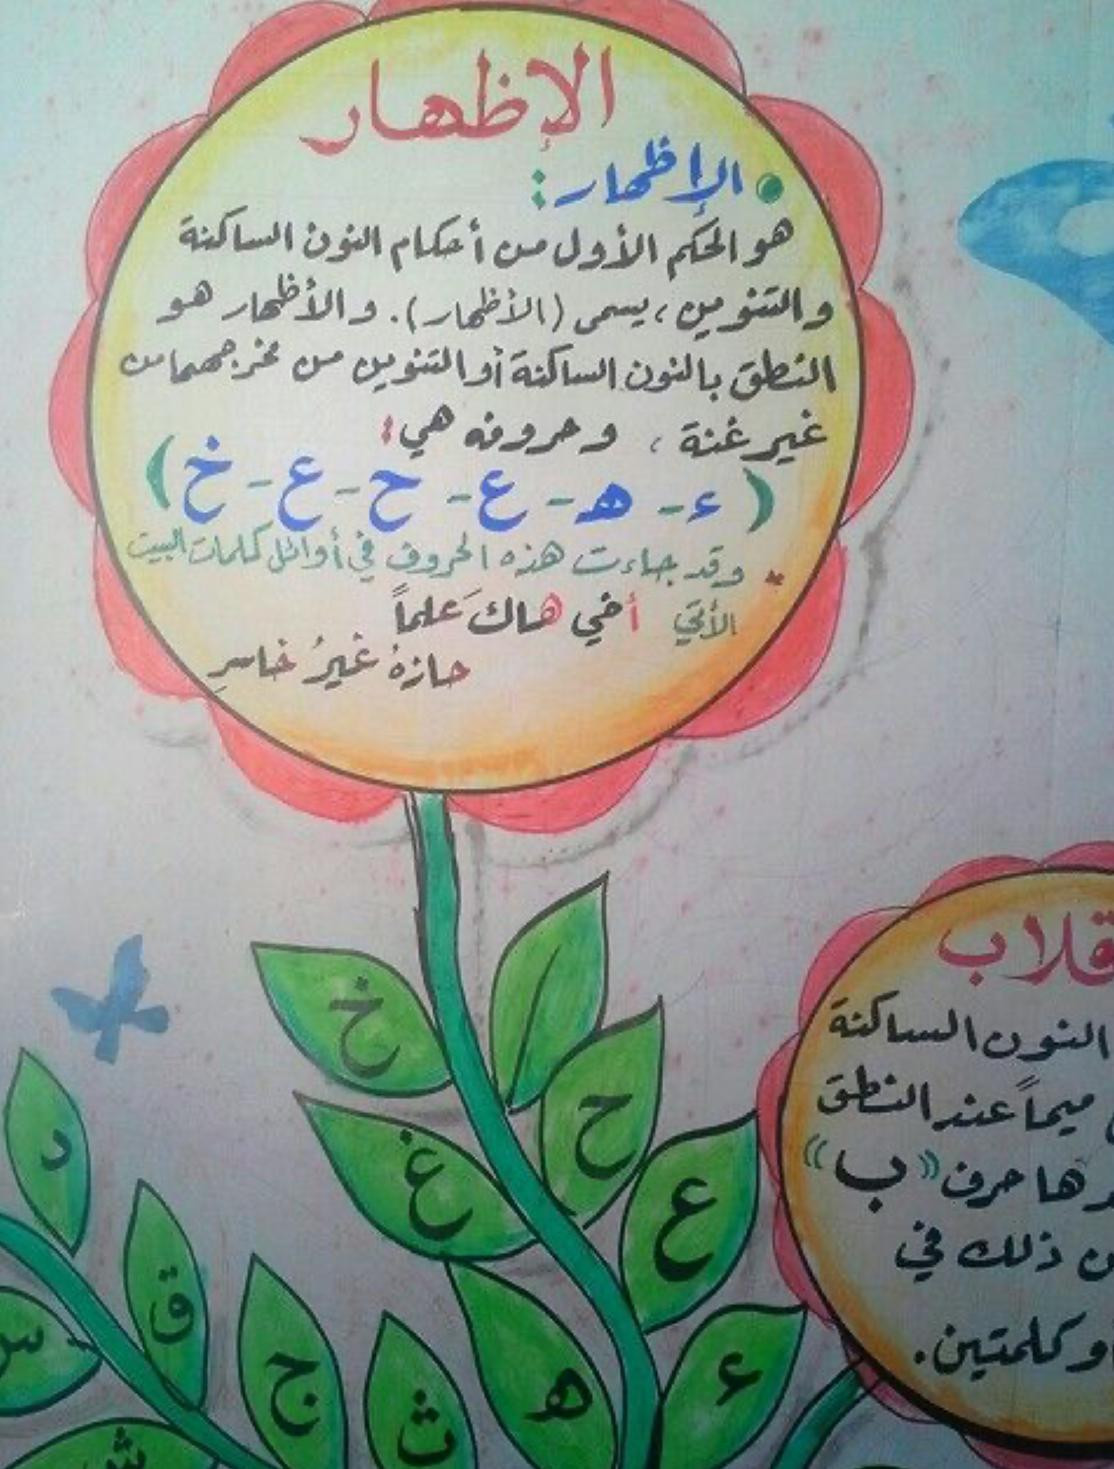 الإظهار
الإظهار:
هو الحكم الأول من أحكام النون الساكنة
والتنوين، يسمى (الأظهار). والأظهار هو
النطق بالنون الساكنة أو التنوين من مخرجهما من
غير غنة، وحروفه هي:
(ء - ه - ع - ح - ع - خ)
* وقد جاءت هذه الحروف في أوائل كلمات البيت
الأتي أخي هاكَ علماً
حازهُ غيرُ خاسرِ
خ
ح
غ
ع
ه
ء
د
ق
ج
ث
س
ش
قلاب
النون الساكنة
ميماً عند النطق
حرف «ب»
ذلك في
وكلمتين.